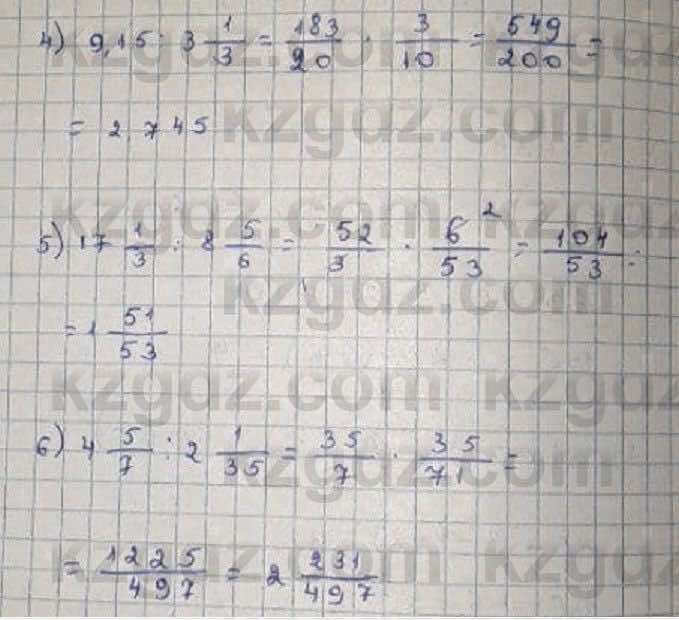 4) 9,15 : 3 1/3 = 183/20 · 3/10 = 549/200 =
= 2,745
5) 17 1/3 : 8 5/6 = 52/3 · 6²/53 = 104/53 =
= 1 51/53
6) 4 5/7 : 2 1/35 = 35/7 · 35/71 =
= 1225/497 = 2 231/497
kzgdz.com